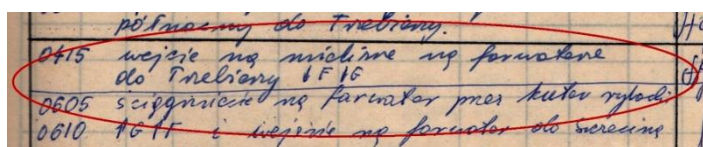 północny do Trzebieży.
0415 wejście na mieliznę na farwaterze
do Trzebieży ↓F↓G
0605 ściągnięcie na farwater przez kuter rybacki
0610 ↑G↑F i wejście na farwater do Szczecina